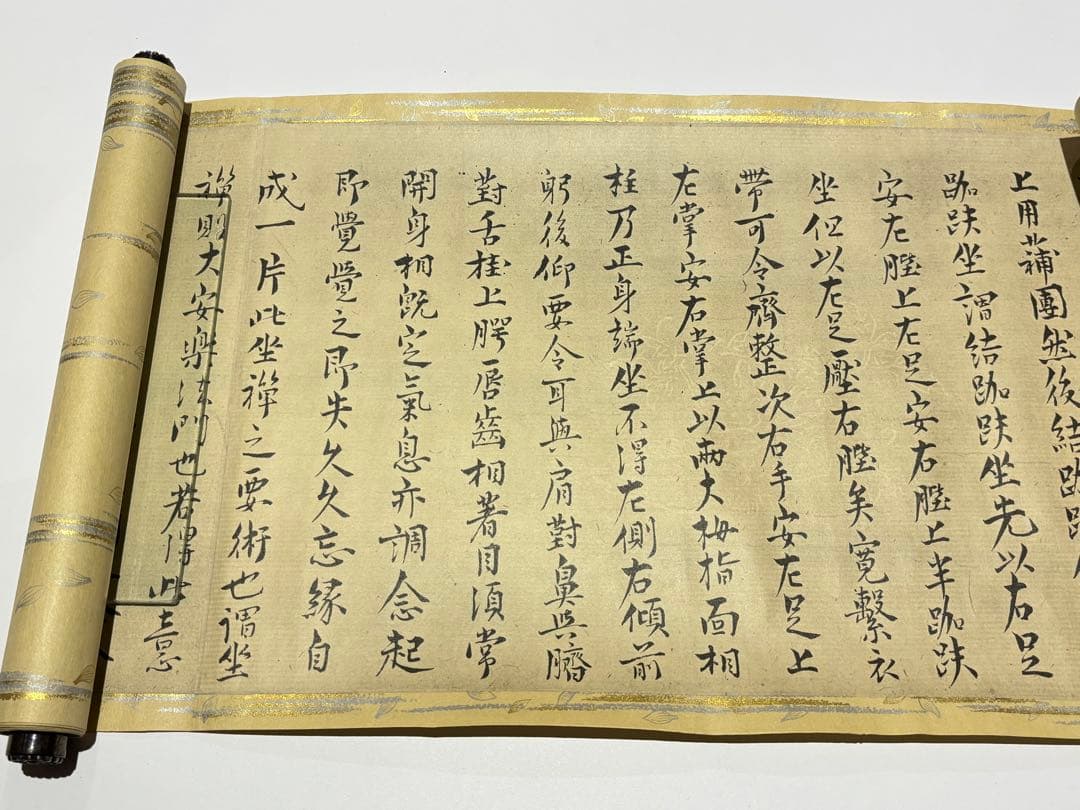 上用蒲團然後結跏趺
跏趺坐謂結跏趺坐先以右足
安左䏶上左足安右䏶上半跏趺
坐但以左足壓右䏶矣寛繫衣
帶可令齊整次右手安左足上
左掌安右掌上以兩大拇指面相
柱乃正身端坐不得左側右傾前
躬後仰要令耳與肩對鼻與臍
對舌掛上腭唇齒相著目須常
開身相旣定氣息亦調念起
即覺覺之即失久久忘緣自
成一片此坐禪之要術也謂坐
禪則大安樂法門也若得此意